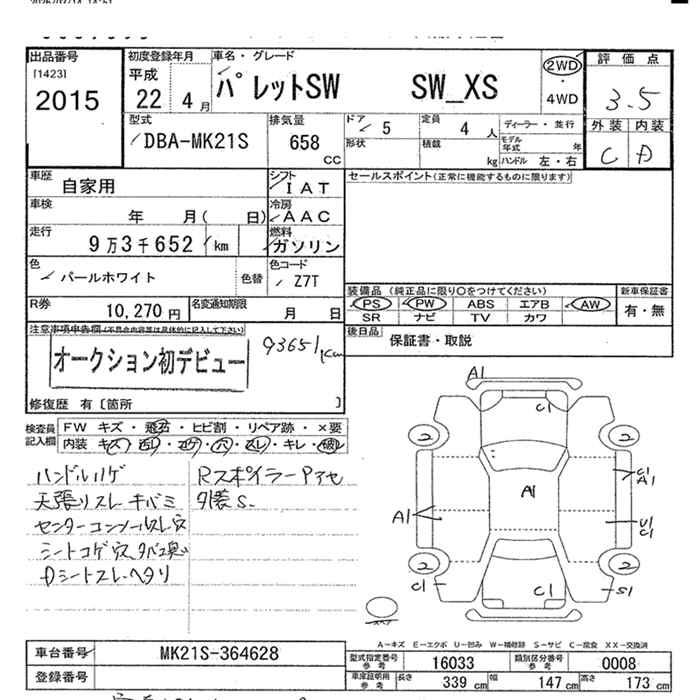 出品番号
[1423]
2015
初度登録年月
平成
22 4 月
車名・グレード
パレットSW SW_XS
2WD
・
4WD
評価点
3.5
外装 内装
C D
型式
DBA-MK21S
排気量
658
CC
ドア
5
形状
定員
4 人
積載
kg
ディーラー・並行
モデル年式 年
ハンドル 左・右
車歴
自家用
シフト
IAT
セールスポイント(正常に機能するものに限ります)
車検
年 月( 日)
冷房
AAC
走行
9万3千652 km
燃料
ガソリン
色
パールホワイト
色替
色コード
Z7T
装備品 (純正品に限り○をつけてください)
PS PW ABS エアB AW
SR ナビ TV カワ
新車保証書
有・無
R券
10,270円
名変通知期限
月 日
後日品
保証書・取説
注意事項申告欄(不具合内容等は具体的に記入して下さい)
オークション初デビュー
93651km
修復歴 有〔箇所 〕
検査員記入欄
FW キズ・飛石・ヒビ割・リペア跡・×要
内装 キズ・汚レ・コゲ・穴・スレ・キレ・破レ
ハンドルハゲ
天張リスレキバミ
センターコンソールスレ穴
シートコゲ穴タバコ臭い
Dシートスレヘタリ
RスポイラーPアセ
外装S.
A1
C1
2 2
A1
A1
C1
A1
U1
C1
2 2
C1
C1
S1
A-キズ E-エクボ U-凹み W-補修跡 S-サビ C-腐食 XX-交換済
車台番号
MK21S-364628
登録番号
型式指定番号
参考
16033
類別区分番号
参考
0008
車庫証明用
参考
長さ 339 cm
幅 147 cm
高さ 173 cm